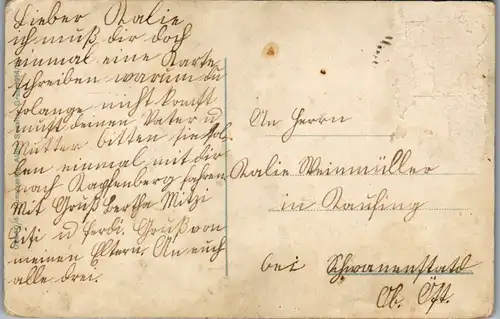 Lieber Kalie
ich muß dir doch
einmal eine Karte
schreiben warum du
solange nicht komst
must deinen Vater u
Mutter bitten sie sol
len einmal mit dir
nach Ratzenberg fahren
Mit Gruß Bertha Mitzi
Lisi u Ferdi. Gruß von
meinen Eltern. An euch
alle drei.
An Herrn
Kalie Weinmüller
in Kaufing
bei Schwanenstatd
Ob. Öst.